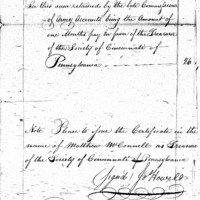 For this sum retained by the late Commissioner
of Army Accounts, being the Amount of
one Months pay in favor of the Treasurer
of the Society of Cincinnati of
Pennsylvania 26
Note Please to issue the Certificate in the
name of Matthew McConnell as Treasurer
of the Society of Cincinnati of Pennsylvania
Signed Jos Howell